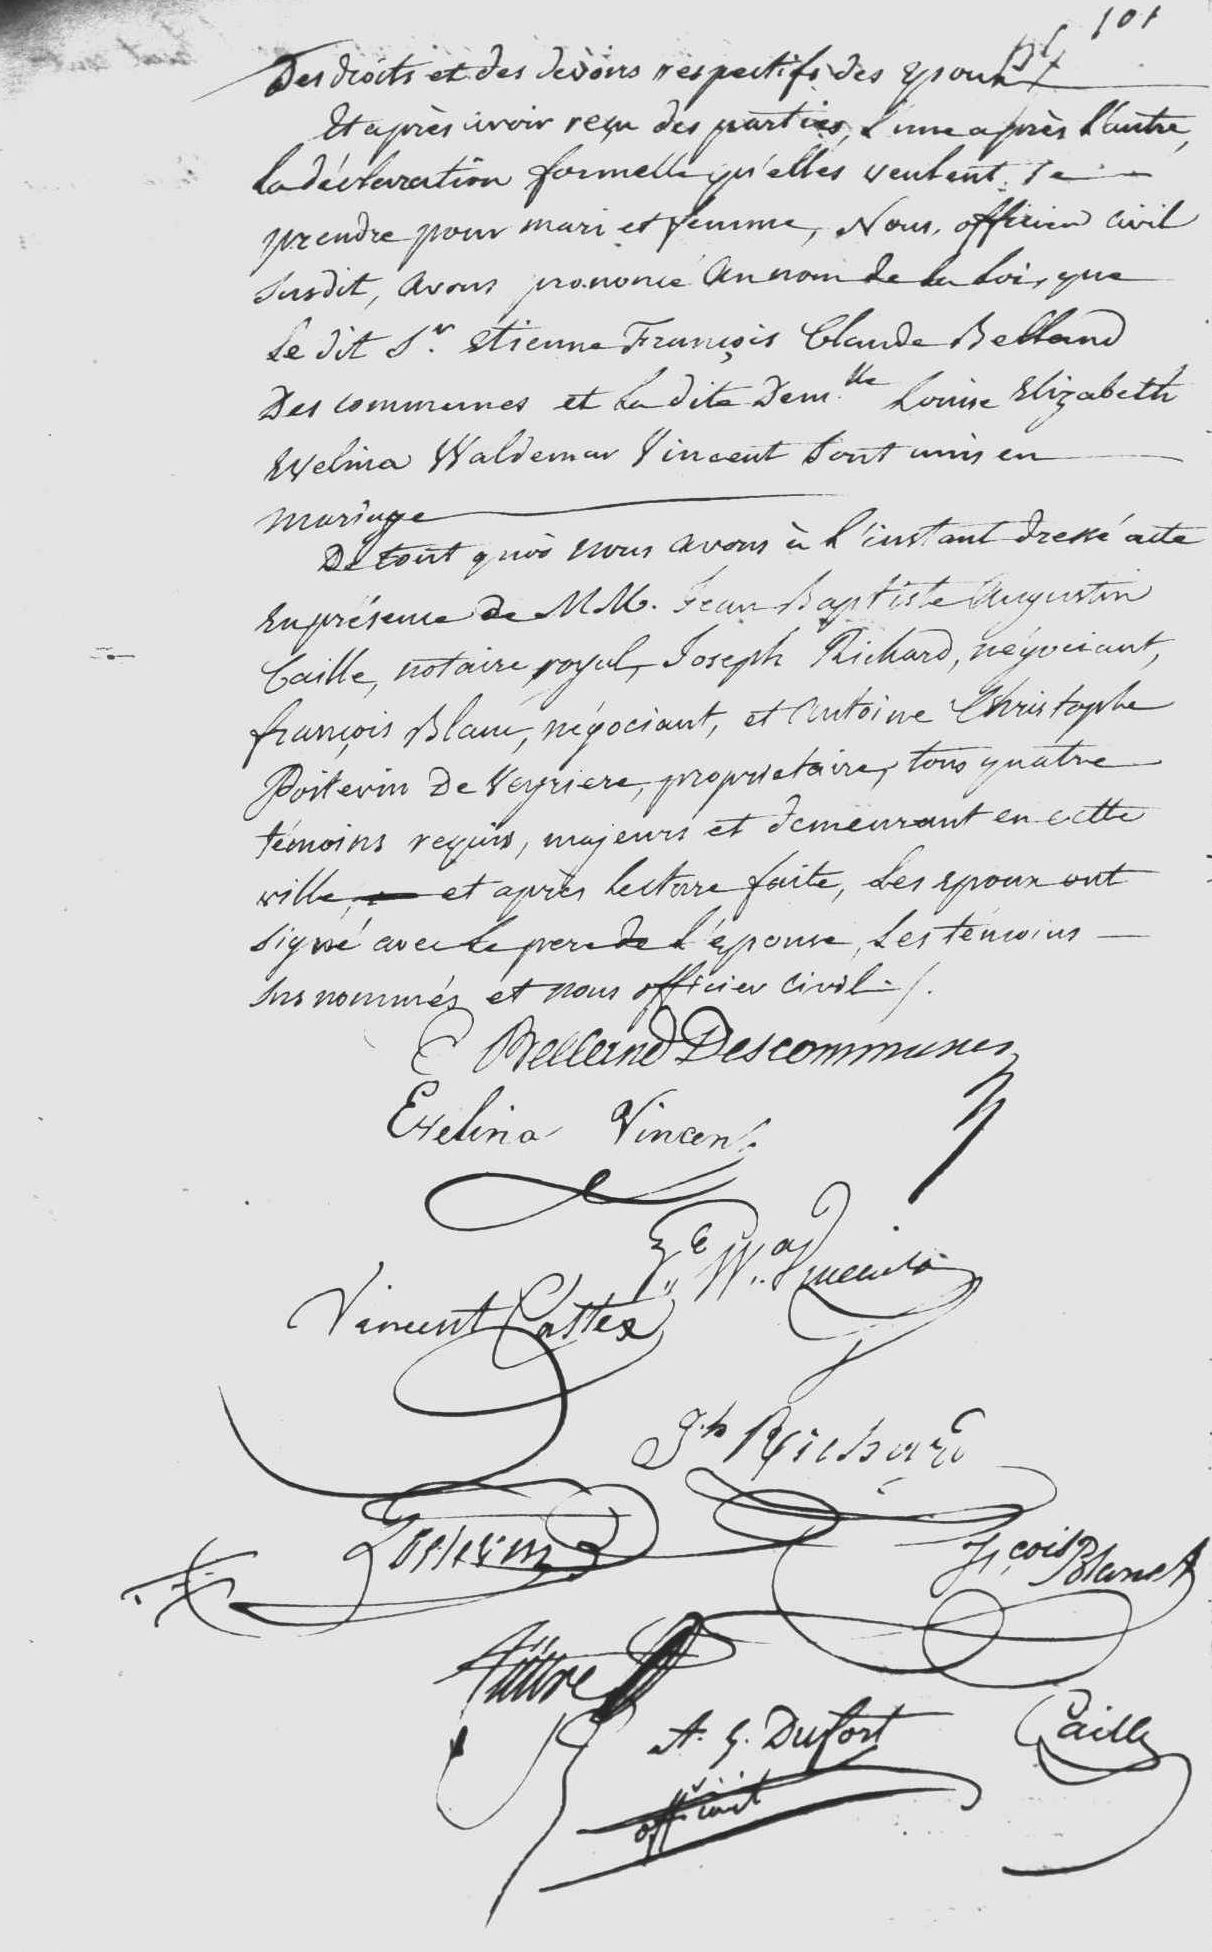 101
Des droits et des devoirs respectifs des époux
Et après avoir reçu des parties, l'une après l'autre,
la déclaration formelle qu'elles veulent se
prendre pour mari et femme, Nous, officier civil
susdit, avons prononcé au nom de la loi, que
le dit Sr. Etienne François Claude Belland
Des communes et la dite Demlle Louise Elizabeth
Evelina Waldemar Vincent sont unis en
mariage
De tout quoi nous avons à l'instant dressé acte
en présence de MM. Jean Baptiste Augustin
Caille, notaire royal, Joseph Richard, négociant,
françois Blanc, négociant, et Antoine Christophe
Poitevin De Veyriere, propriétaire, tous quatre
témoins requis, majeurs et demeurant en cette
ville, et après lecture faite, les époux ont
signé avec le pere de l'épouse, les témoins
sus nommés et nous officier civil ./.
E Belland Descommunes
Evelina Vincent
Vincent Castex
Jh Richard
Poitevin
fçois Blanc
A. G. Dufort
Caille
offr civil